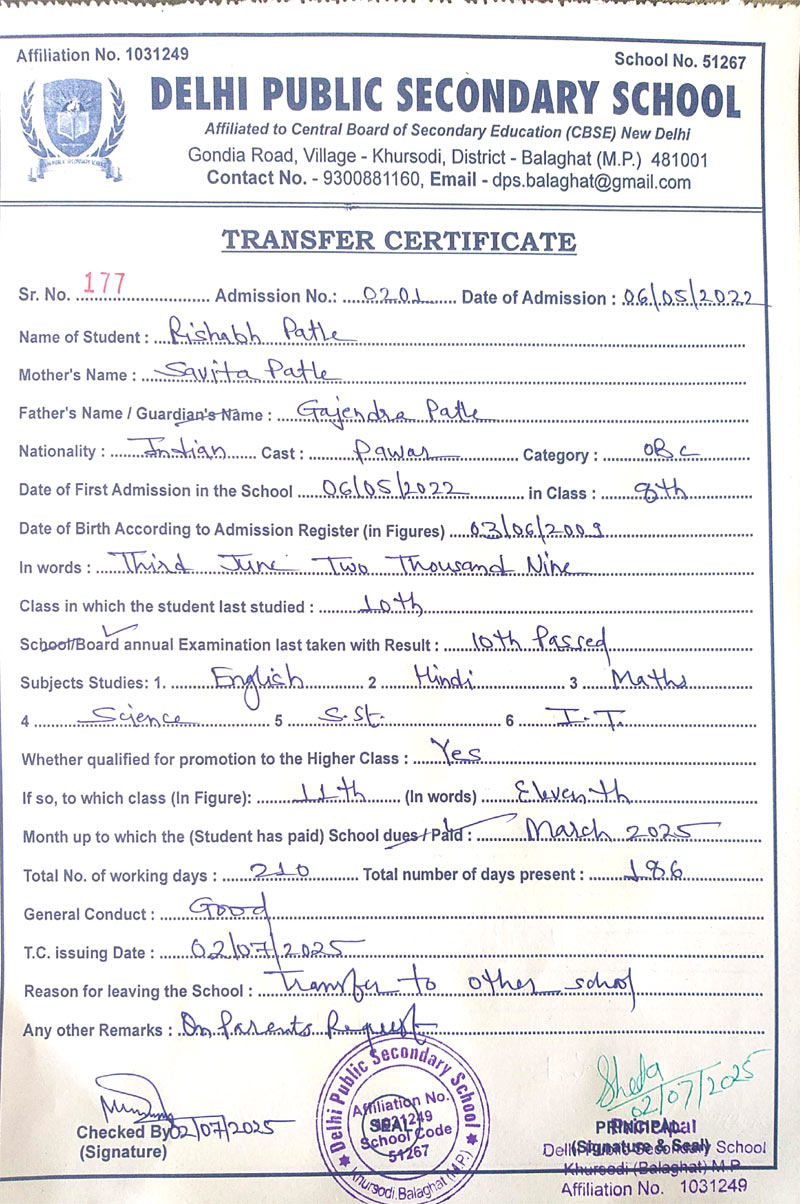 Affiliation No. 1031249
School No. 51267
DELHI PUBLIC SECONDARY SCHOOL
Affiliated to Central Board of Secondary Education (CBSE) New Delhi
Gondia Road, Village - Khursodi, District - Balaghat (M.P.) 481001
Contact No. - 9300881160, Email - dps.balaghat@gmail.com
TRANSFER CERTIFICATE
Sr. No. 177 Admission No.: 0201 Date of Admission : 06/05/2022
Name of Student : Rishabh Patle
Mother's Name : Savita Patle
Father's Name / Guardian's Name : Gajendra Patle
Nationality : Indian Cast : Pawar Category : OBC
Date of First Admission in the School 06/05/2022 in Class : 8th
Date of Birth According to Admission Register (in Figures) 03/06/2009
In words : Third June Two Thousand Nine
Class in which the student last studied : 10th
School/Board annual Examination last taken with Result : 10th Passed
Subjects Studies: 1. English 2 Hindi 3 Maths
4 Science 5 S.St. 6 I.T.
Whether qualified for promotion to the Higher Class : Yes
If so, to which class (In Figure): 11th (In words) Eleventh
Month up to which the (Student has paid) School dues / Paid : March 2025
Total No. of working days : 210 Total number of days present : 186
General Conduct : Good
T.C. issuing Date : 02/07/2025
Reason for leaving the School : Transfer to other school
Any other Remarks : On Parents Request
Checked By 02/07/2025
(Signature)
Delhi Public Secondary School
Affiliation No.
1031249
SEAL
School Code
51267
Khursodi, Balaghat (M.P.)
02/07/2025
PRINCIPAL
Principal
(Signature & Seal)
Delhi Public Secondary School
Khursodi (Balaghat) M.P.
Affiliation No. 1031249